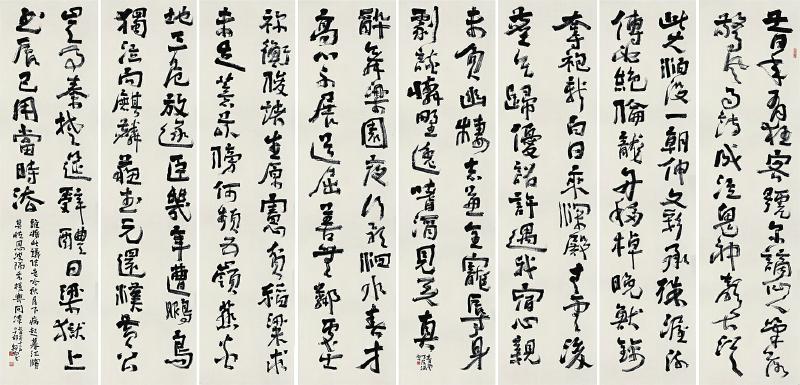 昔年有狂客號尔謫仙人筆落
驚風雨詩成泣鬼神聲名從
此大汩没一朝伸文彩承殊渥流
傳必絕倫龍舟移棹晚獸錦
奪袍新白日來深殿青雲後
塵乞歸優詔許遇我宿心親
未負幽棲志兼全寵辱身
劇談憐野逸嗜酒見天真
醉舞梁園夜行歌泗水春才
高心不展道屈善無鄰處士
禰衡俊諸生原憲貧稻粱求
未足薏苡謗何頻五嶺炎蒸
地三危放逐臣幾年遭鵩鳥
獨泣向麒麟蘇武元還漢黃公
豈事秦楚筵辭醴日梁獄上
書辰已用當時法
誰將此議陳老吟秋月下病起暮江濱
莫怪恩波隔乘槎與問津